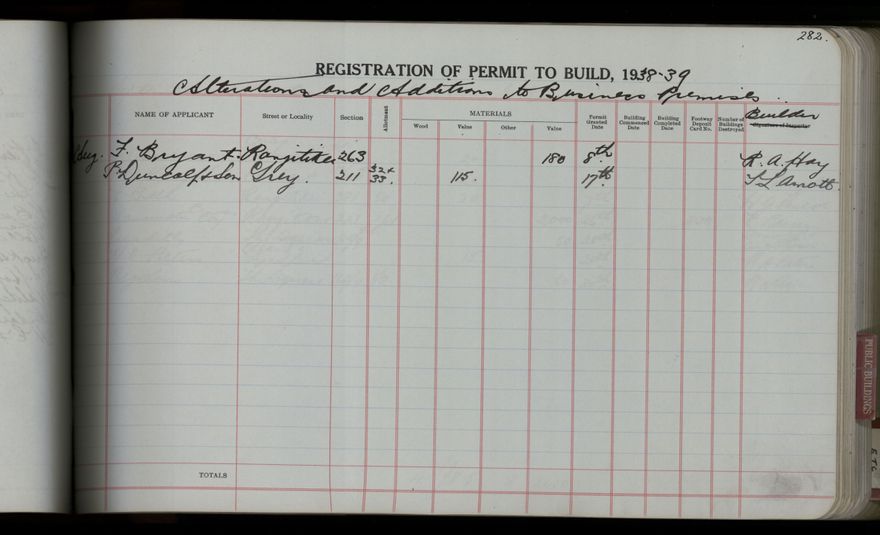 282.
REGISTRATION OF PERMIT TO BUILD, 1938-39
Alterations and Additions to Business Premises
NAME OF APPLICANT Street or Locality Section Allotment MATERIALS Wood Value Other Value Permit Granted Date Building Commenced Date Building Completed Date Footway Deposit Card No. Number of Buildings Destroyed Builder Signature of Inspector
Aug. F. Bryant. Rangitikei 263 180 8th R. A. Hay
P. Duncalf & Son Grey. 211 32 & 33. 115. 17th T L Arnott.
TOTALS
PUBLIC BUILDINGS